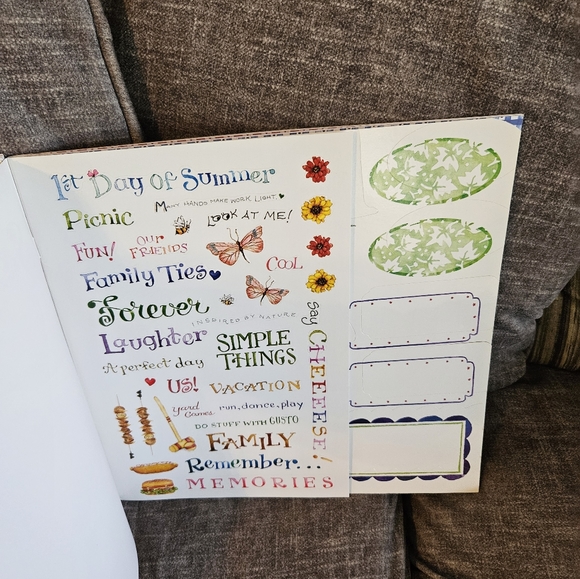 1st Day of Summer
Picnic
Many hands make work light
Look at me!
Fun!
Our
Friends
Family Ties
Cool
Forever
Inspired by nature
Laughter
Simple
Things
A perfect day
Us!
Vacation
yard
Games
run, dance, play
Do stuff with gusto
Family
Remember...
Memories
Say
Cheeeese!